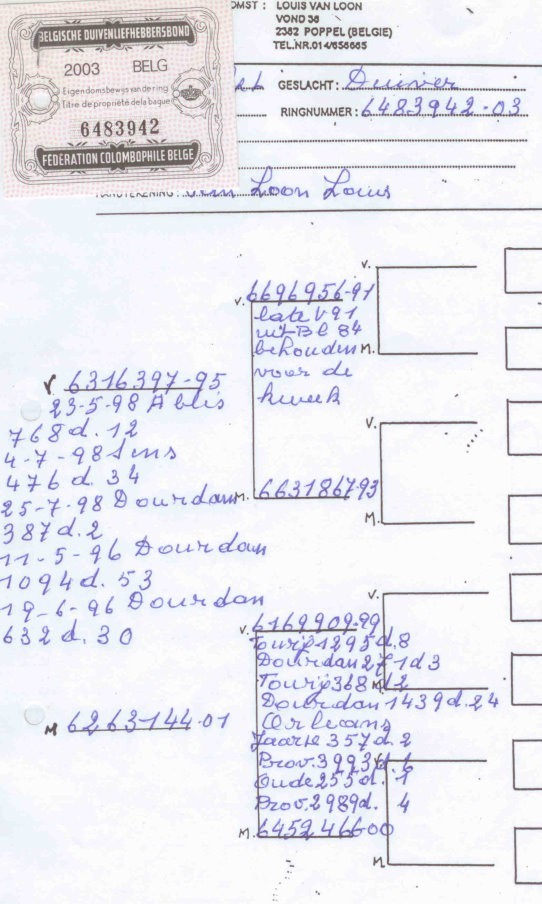 OMST : LOUIS VAN LOON
VOND 36
2382 POPPEL (BELGIE)
TEL.NR.014/656665
BELGISCHE DUIVENLIEFHEBBERSBOND
2003 BELG
Eigendomsbewijs van de ring
Titre de propriété de la bague
6483942
FEDERATION COLOMBOPHILE BELGE
GESLACHT: Duiver
RINGNUMMER: 6483942-03
HANDTEKENING: Van Loon Louis
V. 6696956-91
late V91
uit Bl 84
behouden
voor de
kweek
M. 6631867-93
V 6316397-95
23-5-98 Ablis
768 d. 12
4-7-98 Sens
476 d. 34
25-7-98 Dourdan
387 d. 2
11-5-96 Dourdan
1094 d. 53
19-6-96 Dourdan
632 d. 30
V. 6169909-99
Toury 1295 d. 8
Dourdan 271 d 3
Toury 368 12
Dourdan 1439 d. 24
Orleans
Jaarse 357 d. 2
Prov. 3993 d. 6
Oude 255 d. 1
Prov. 2989 d. 4
M. 6452466-00
M 6263144-01
V.
M.
V.
M.
V.
M.
V.
M.